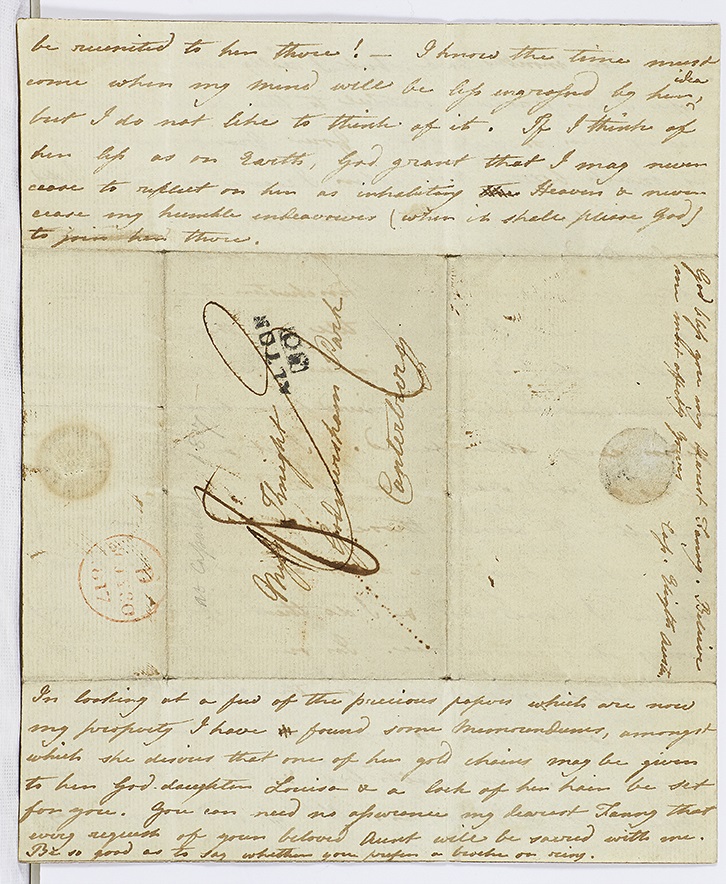 be reunited to her there! — I know the time must
come when my mind will be less engrossed by her idea,
but I do not like to think of it. If I think of
her less as on Earth, God grant that I may never
cease to reflect on her as inhabiting Heaven & never
cease my humble endeavours (when it shall please God)
to join her there.
God bless you my dearest Fanny. Believe
me most affectly yours
Cass. Elizth Austen
ALTON
Miss Knight
Godmersham Park
Canterbury
1817
In looking at a few of the precious papers which are now
my property I have found some Memorandums, amongst
which she desires that one of her gold chains may be given
to her God-daughter Louisa & a lock of her hair be set
for you. You can need no assurance my dearest Fanny that
every request of your beloved Aunt will be sacred with me.
Be so good as to say whether you prefer a broche or ring.